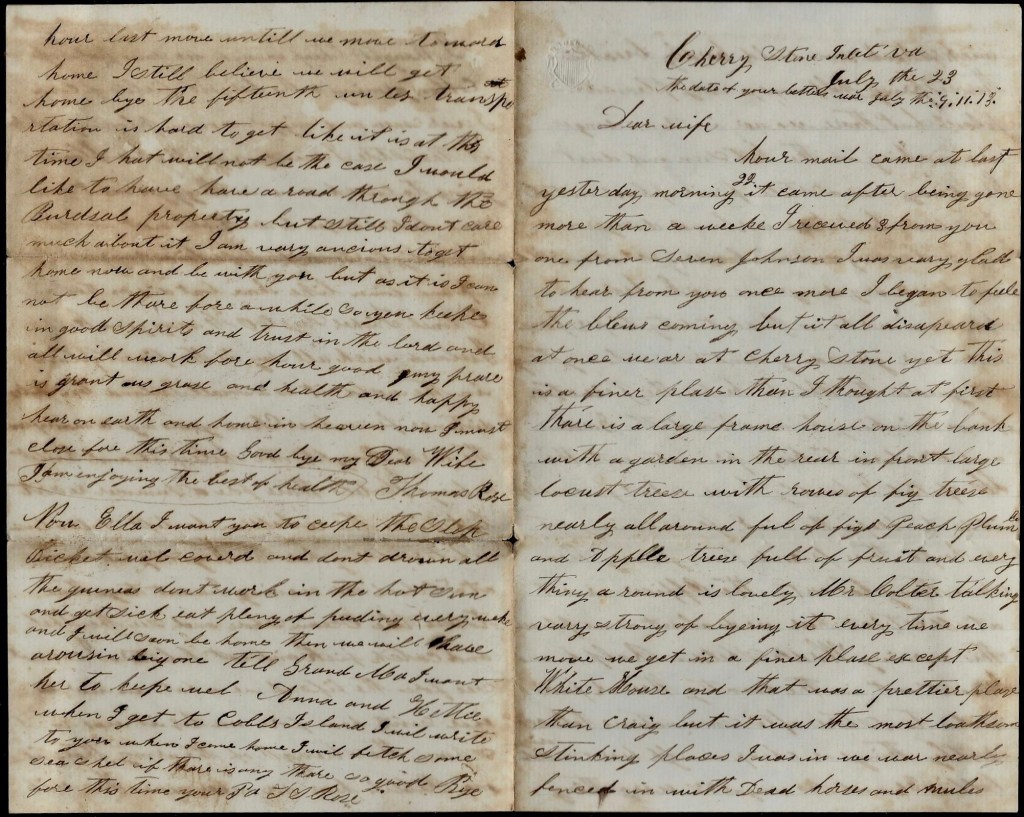 Cherry Stone Inlet Va
July the 23
the date of your letters was July the 9. 11. 13.
Dear wife
hour mail came at last
yesterday morning 22 it came after being gone
more than a weeke I received 3 from you
one from Seven Johnson I was vary glad
to hear from you once more I began to feele
the blews coming but it all disapeard
at once we ar at Cherry Stone yet this
is a finer plase than I thought at first
thare is a large frame house on the bank
with a garden in the rear in front large
locust treese with rowes of fig treese
nearly all around ful of figs Peach Plum
and Apple treese full of fruit and every
thing a round is lovely Mr Colter talking
vary strong of byeing it every time we
move we get in a finer plase except
White House and that was a prettier plase
than Craig but it was the most loathsom
stinking places I was in we war nearly
fenced in with Dead horses and mules
hour last move untill we move toward
home I still believe we will get
home bye the fifteenth unles transpo
rtation is hard to get like it is at this
time I hat will not be the case I would
like to have have a road through the
Burdsal property but still I dont care
much about it I am vary ancious to get
home now and be with you but as it is I can
not be thare fore a while so you keepe
in good spirits and trust in the lord and
all will work fore hour good my prare
is grant us grase and health and happy
hear on earth and home in heaven now I must
close fore this time Good bye my Dear Wife
I am enjoying the best of health Thomas Rose
Now Ella I want you to ceepe the
wel coverd and dont drown all
the guineas dont work in the hot sun
and get sick eat plenty of puding every weke
and I will soon be home then we will have
a rousin big one tell Grand Ma I want
her to keepe wel Anna and Hettie
when I get to Cobbs Island I wil write
to you when I come home I wil fetch some
sea shel if thare is any thare so good Bye
fore this time your Pa T S Rose